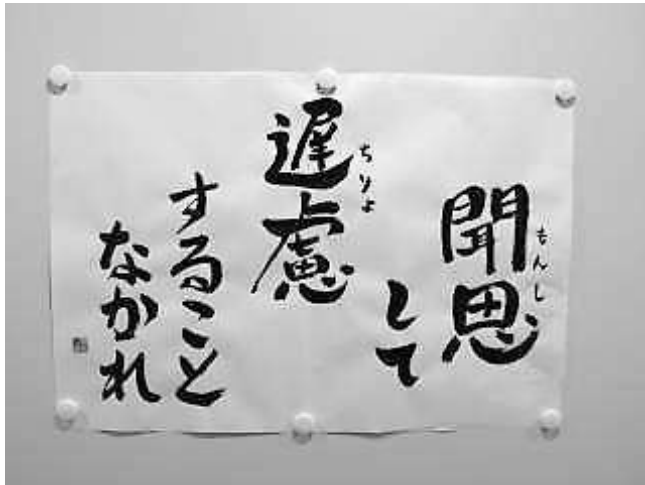 聞思
もんし
して
遅慮
ちりよ
すること
なかれ